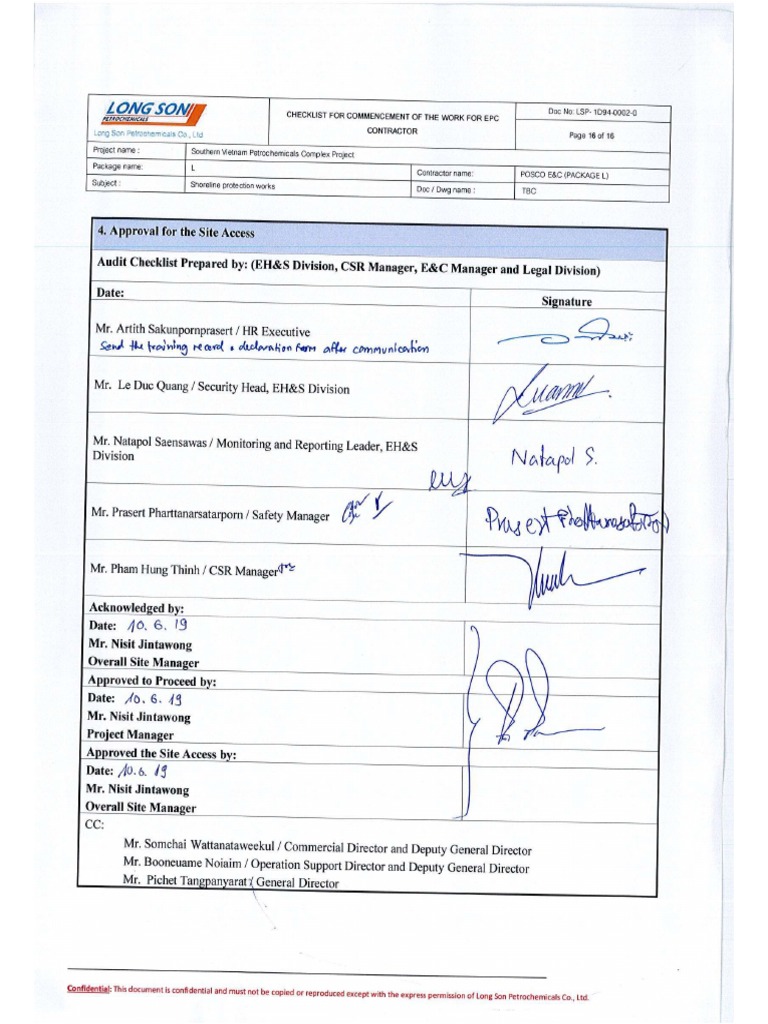 LONG SON
PETROCHEMICALS
Long Son Petrochemicals Co., Ltd
CHECKLIST FOR COMMENCEMENT OF THE WORK FOR EPC
CONTRACTOR
Doc No: LSP- 1D94-0002-0
Page 16 of 16
Project name :
Southern Vietnam Petrochemicals Complex Project
Package name:
L
Contractor name:
POSCO E&C (PACKAGE L)
Subject :
Shoreline protection works
Doc / Dwg name :
TBC
4. Approval for the Site Access
Audit Checklist Prepared by: (EH&S Division, CSR Manager, E&C Manager and Legal Division)
Date:
Signature
Mr. Artith Sakunpornprasert / HR Executive
Send the training record & declaration form after communication
Mr. Le Duc Quang / Security Head, EH&S Division
Mr. Natapol Saensawas / Monitoring and Reporting Leader, EH&S
Division
Natapol S.
Mr. Prasert Pharttanarsatarporn / Safety Manager
Prasert
Mr. Pham Hung Thinh / CSR Manager
Acknowledged by:
Date: 10. 6. 19
Mr. Nisit Jintawong
Overall Site Manager
Approved to Proceed by:
Date: 10. 6. 19
Mr. Nisit Jintawong
Project Manager
Approved the Site Access by:
Date: 10.6. 19
Mr. Nisit Jintawong
Overall Site Manager
CC:
Mr. Somchai Wattanataweekul / Commercial Director and Deputy General Director
Mr. Booncuame Noiaim / Operation Support Director and Deputy General Director
Mr. Pichet Tangpanyarat / General Director
Confidential: This document is confidential and must not be copied or reproduced except with the express permission of Long Son Petrochemicals Co., Ltd.